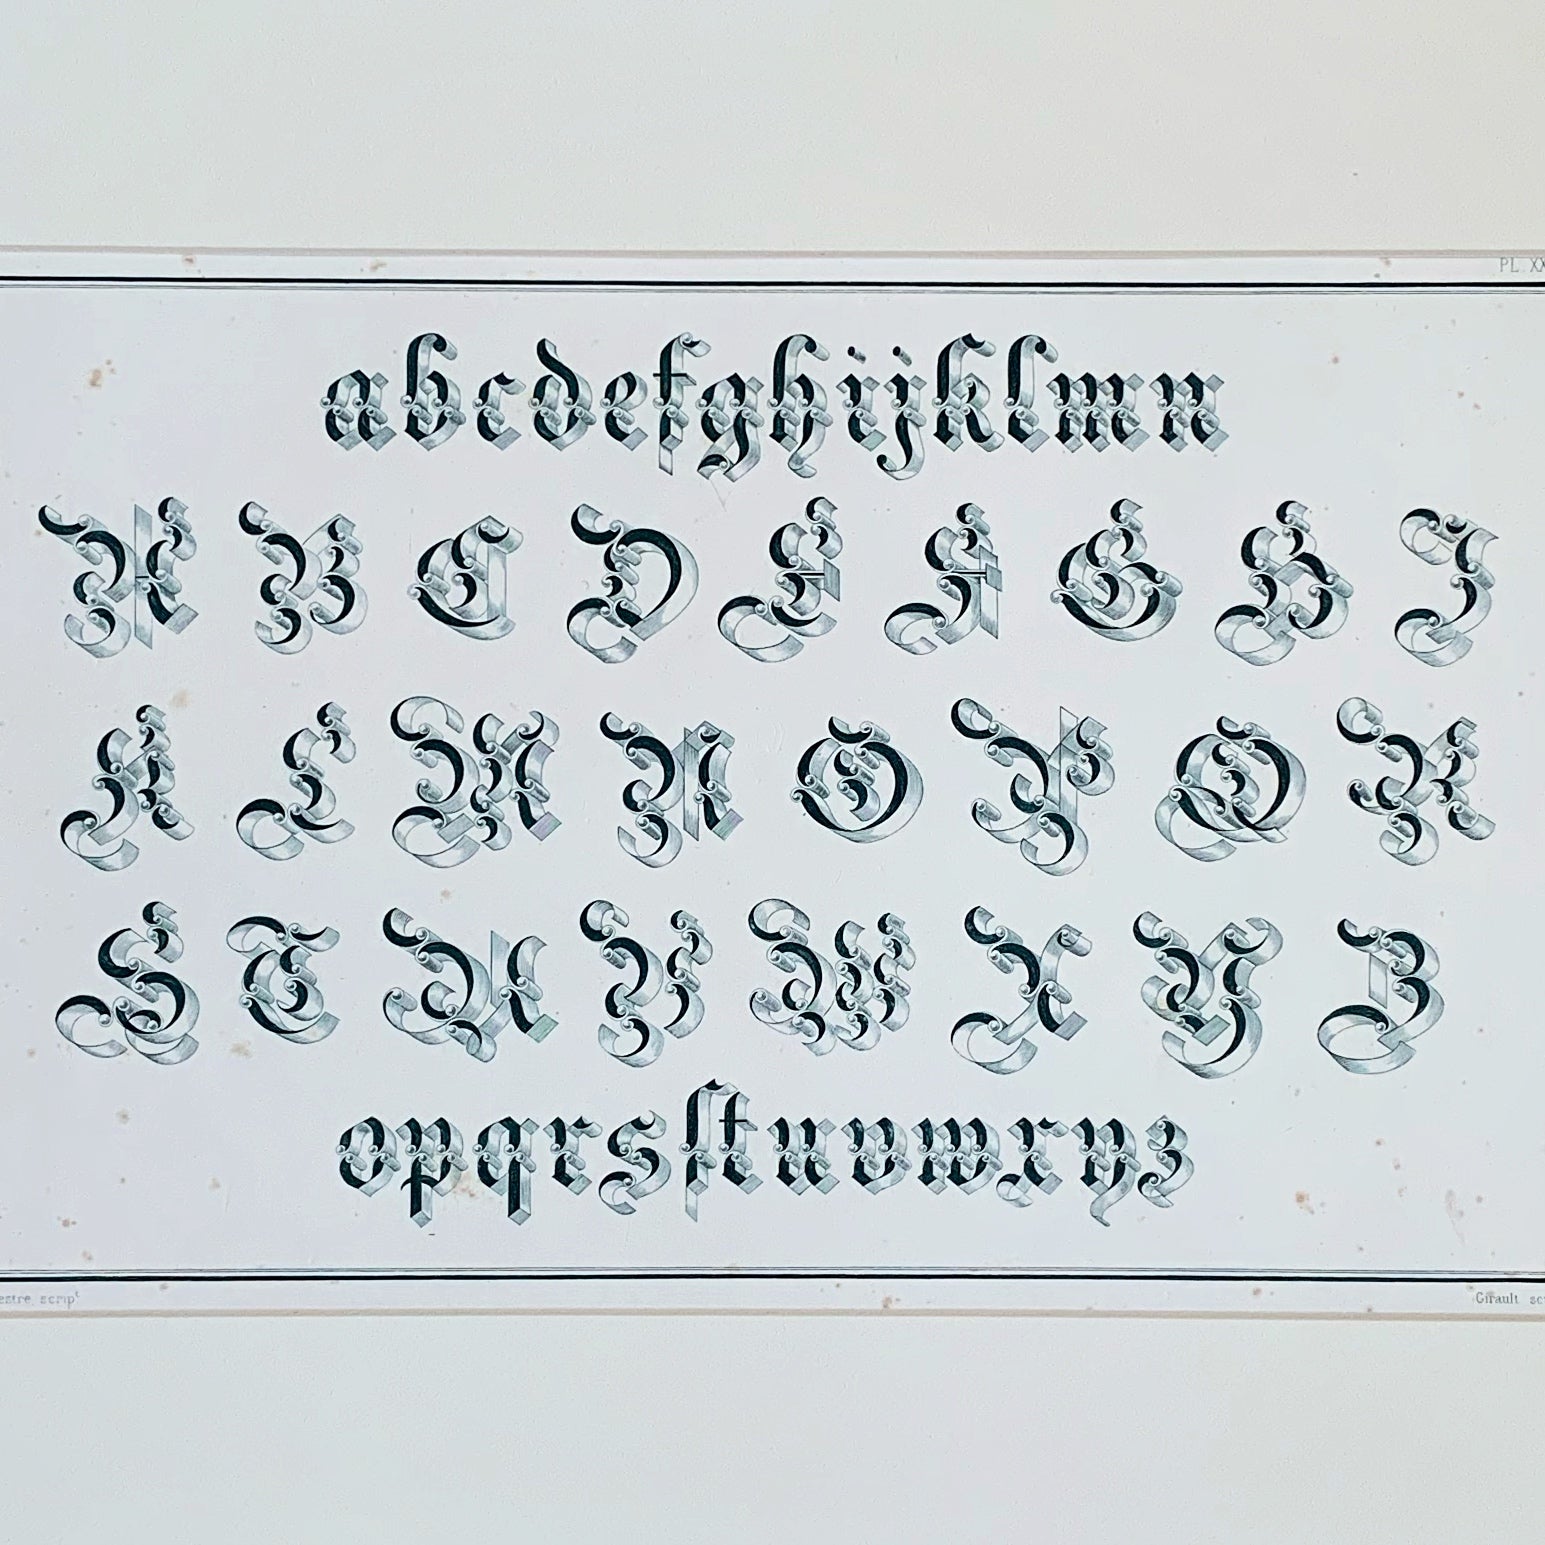 PL. XX
abcdefghijklmn
ABCDEFGHIJ
KLMNOPQR
STUVWXYZ
opqrsſtuvwxyz
estre, scrip^t
Girault sc